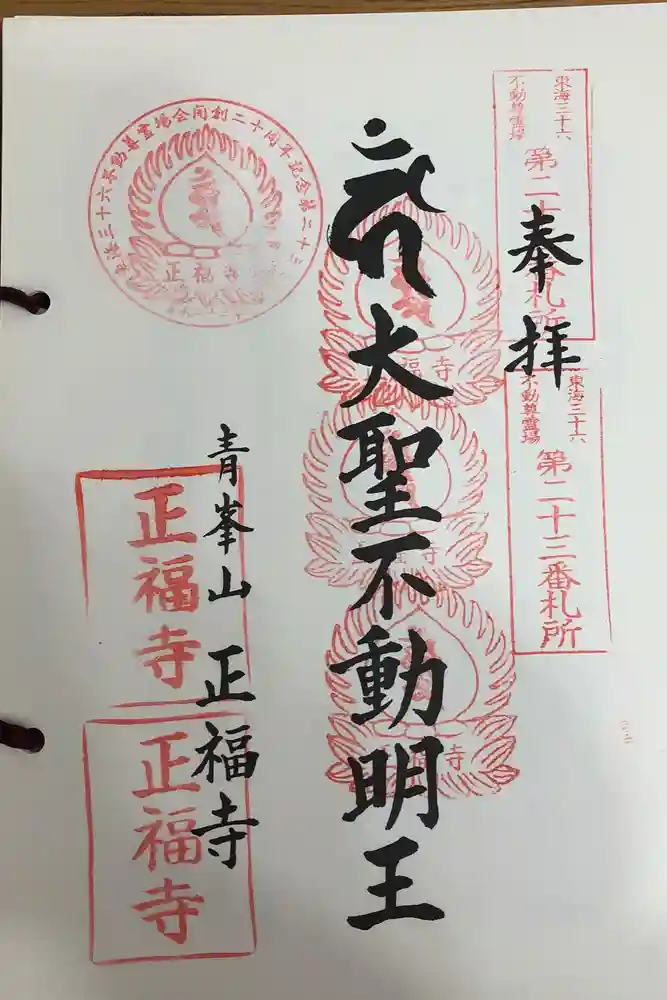 東海三十六
不動尊霊場
第二十三番札所
奉拝
東海三十六
不動尊霊場
第二十三番札所
大聖不動明王
福寺
寺
寺
東海三十六不動尊霊場会開創二十周年記念第二十三
正福寺
青峯山 正福寺
正福寺
正福寺